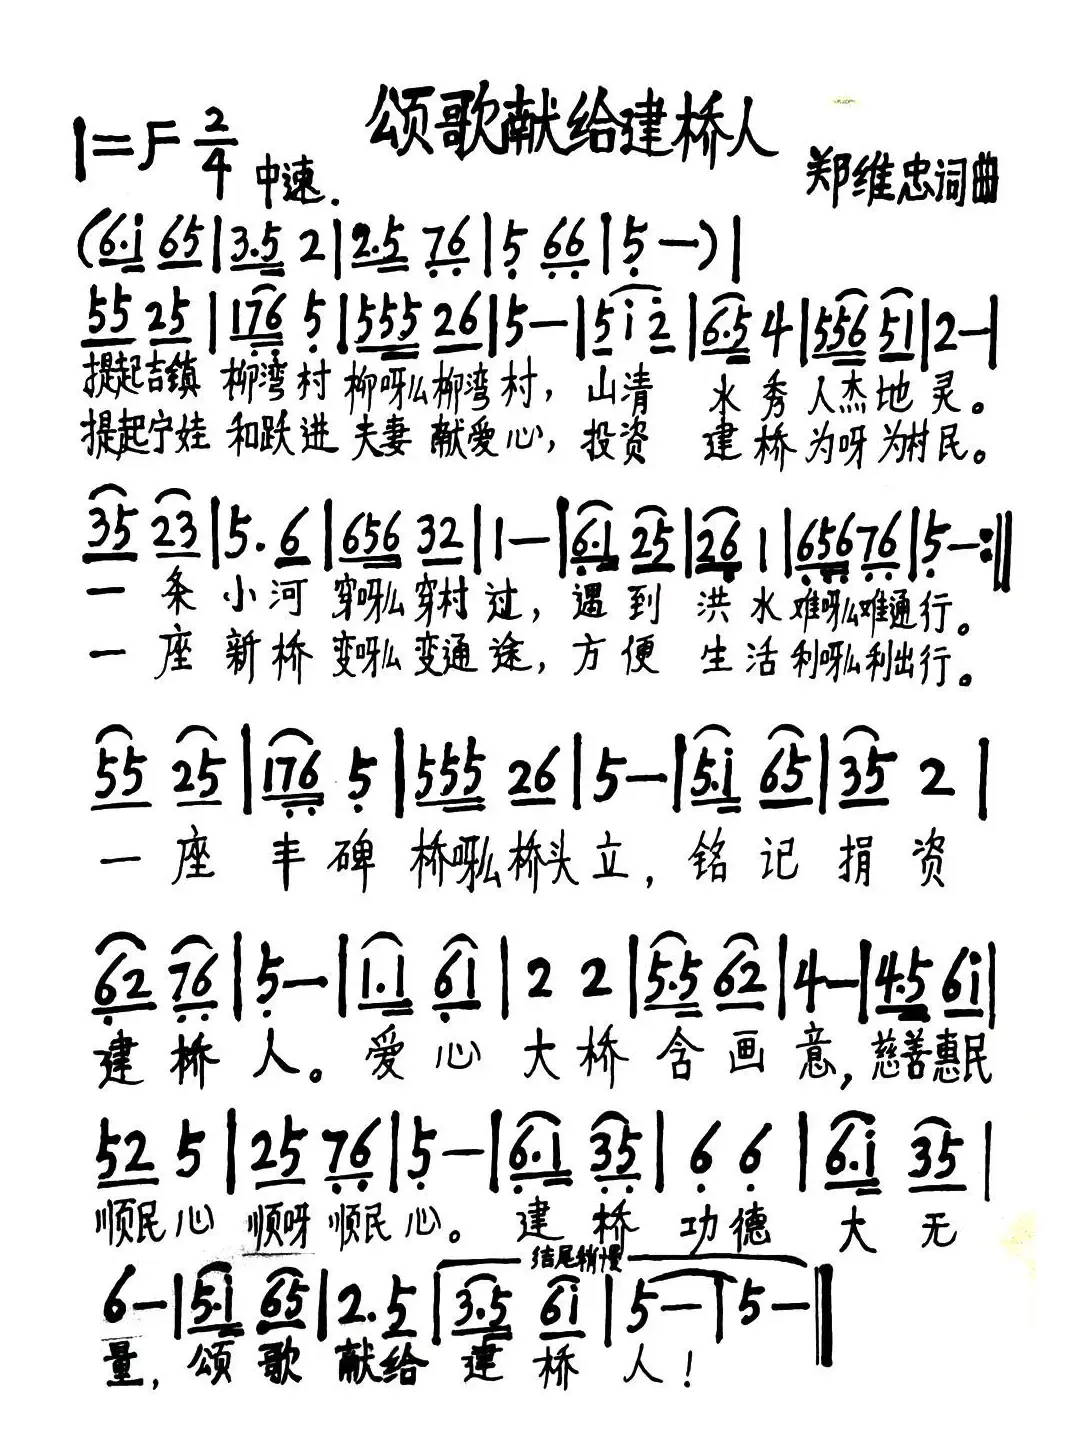 颂歌献给建桥人
1=F 2/4 中速.
郑维忠词曲
(6·i 65|3·5 2|2·5 76|5 66|5—)|
55 25|176 5|555 26|5—|5 i 2|6·5 4|556 51|2—|
提起吉镇 柳湾村 柳呀么柳湾村，山清 水秀人杰地灵。
提起宁娃 和跃进 夫妻献爱心，投资 建桥为呀为村民。
35 23|5·6|656 32|1—|6·1 25|26 1|656 76|5—:‖
一条小河 穿呀么穿村过，遇到 洪水难呀么难通行。
一座新桥 变呀么变通途，方便 生活利呀么利出行。
55 25|176 5|555 26|5—|5·i 65|35 2|
一座丰碑 桥呀么桥头立，铭记捐资
62 76|5—|1·1 61|2 2|5·5 62|4—|4·5 6i|
建桥人。爱心大桥含画意，慈善惠民
52 5|25 76|5—|6·1 35|6 6|6·i 35|
顺民心 顺呀顺民心。建桥功德大无
结尾稍慢
6—|5·i 65|2·5|3·5 6i|5—|5—‖
量，颂歌献给建桥人！